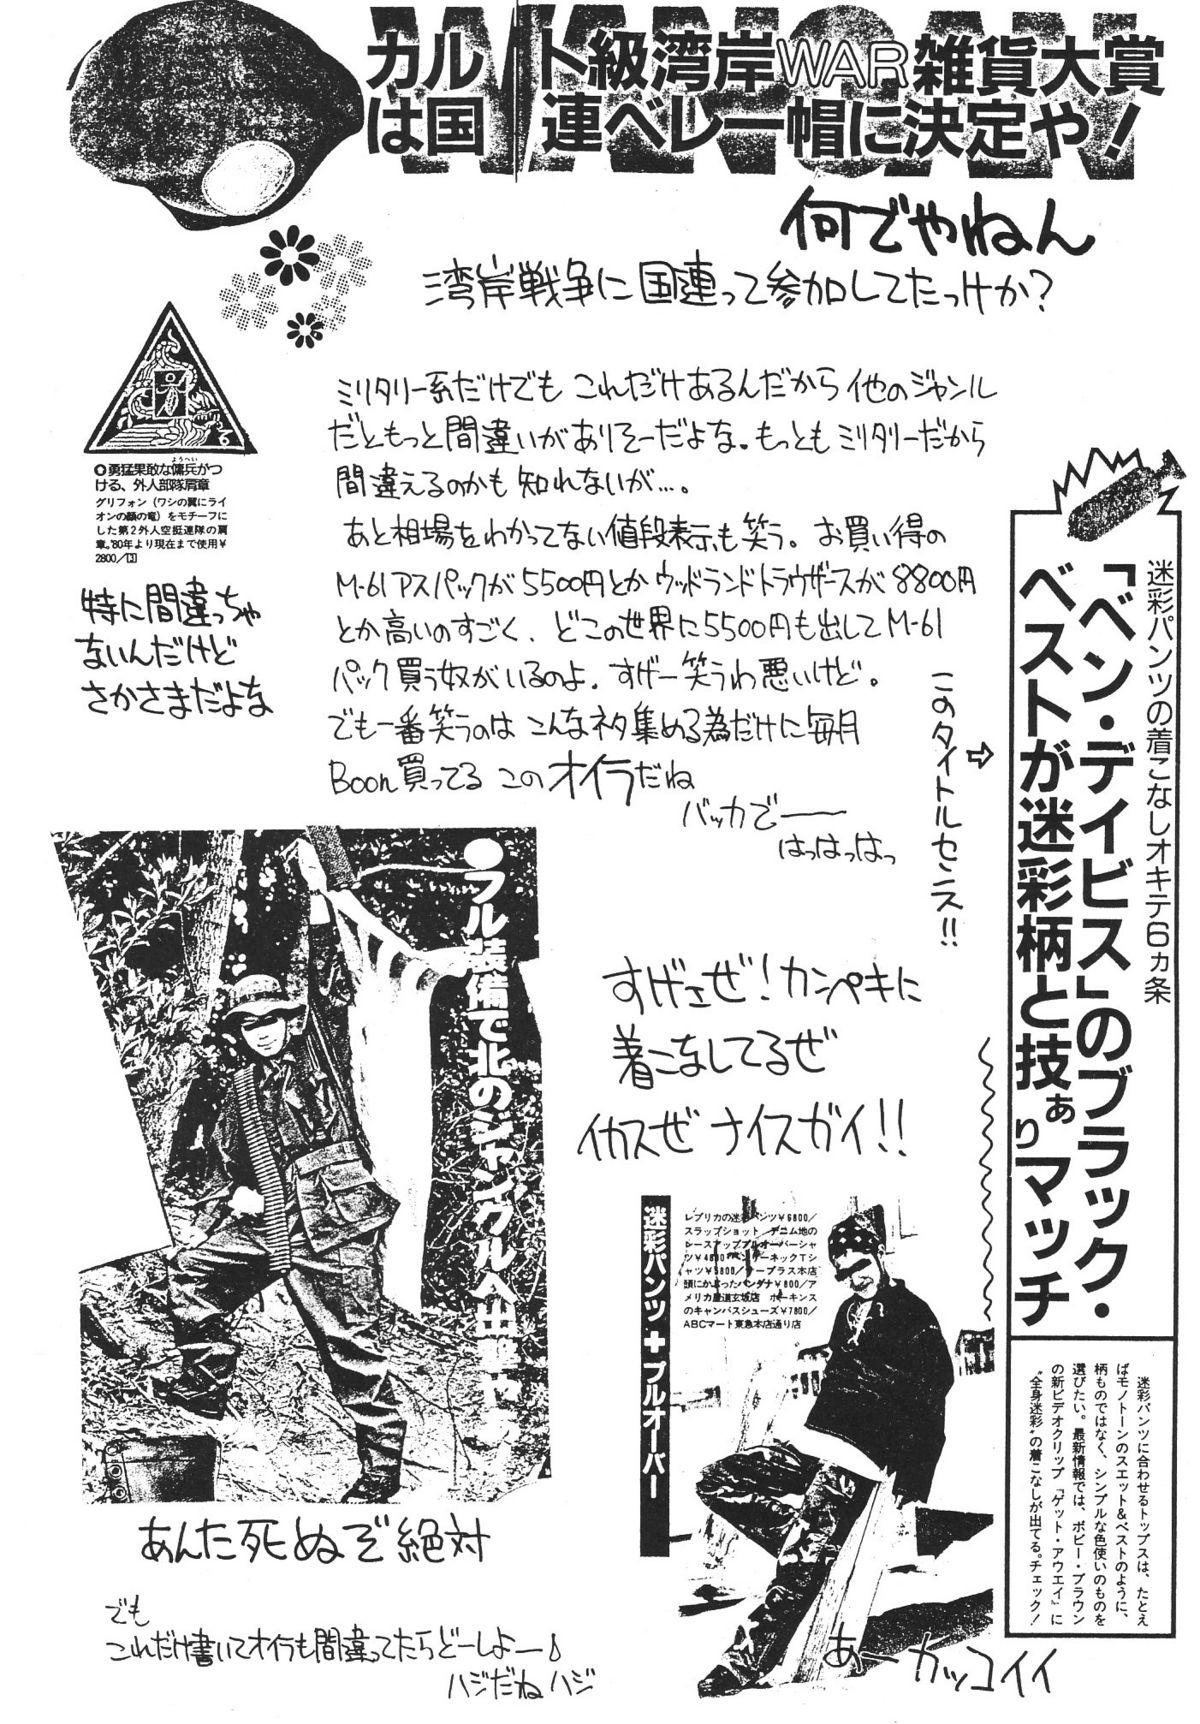 WANGAN
カルト級湾岸WAR雑貨大賞
は国連ベレー帽に決定や!
何でやねん
湾岸戦争に国連って参加してたっけか?
ミリタリー系だけでも これだけあるんだから 他のジャンル
だともっと間違いがありそーだよな。もっとも ミリタリーだから
間違えるのかも 知れないが…。
あと相場をわかってない値段表示も笑う。お買い得の
M-61アスパックが5500円とかウッドランドトラウザースが8800円
とか高いのすごく、どこの世界に5500円も出してM-61
パック買う奴がいるのよ。すげー笑うわ悪いけど。
でも一番笑うのは こんなネタ集める為だけに毎月
Boon買ってる このオイラだね
バッカでー
はっはっはっ
◯勇猛果敢な傭兵がつ
ようへい
ける、外人部隊肩章
グリフォン(ワシの翼にライ
オンの顔の竜)をモチーフに
した第2外人空挺連隊の肩
章。'80年より現在まで使用¥
2800/
特に間違っちゃ
ないんだけど
さかさまだよな
このタイトルセンス!!
⇨
迷彩パンツの着こなしオキテ6ヵ条
「ベン・デイビス」のブラック・
ベストが迷彩柄と技ぁりマッチ
迷彩パンツに合わせるトップスは、たとえ
ばモノトーンのスエット&ベストのように、
柄ものではなく、シンプルな色使いのものを
選びたい。最新情報では、ボビー・ブラウン
の新ビデオクリップ『ゲット・アウエイ』に
“全身迷彩”の着こなしが出てる。チェック!
●フル装備で北のジャングルへ出撃
あんた死ぬぞ絶対
すげェぜ!カンペキに
着こなしてるぜ
イカスぜ ナイスガイ!!
迷彩パンツ+プルオーバー
レプリカの迷彩パンツ¥6800/
スラップショット デニム地の
レースアッププルオーバーシャ
ツ¥4800 ヘンリーネックTシ
ャツ¥3800/ナープラス本店
頭にかぶったバンダナ¥800/ア
メリカ屋道玄坂店 ホーキンス
のキャンバスシューズ¥7800/
ABCマート東急本店通り店
あー カッコイイ
でも
これだけ書いてオイラも間違ってたらどーしよー♪
ハジだねハジ